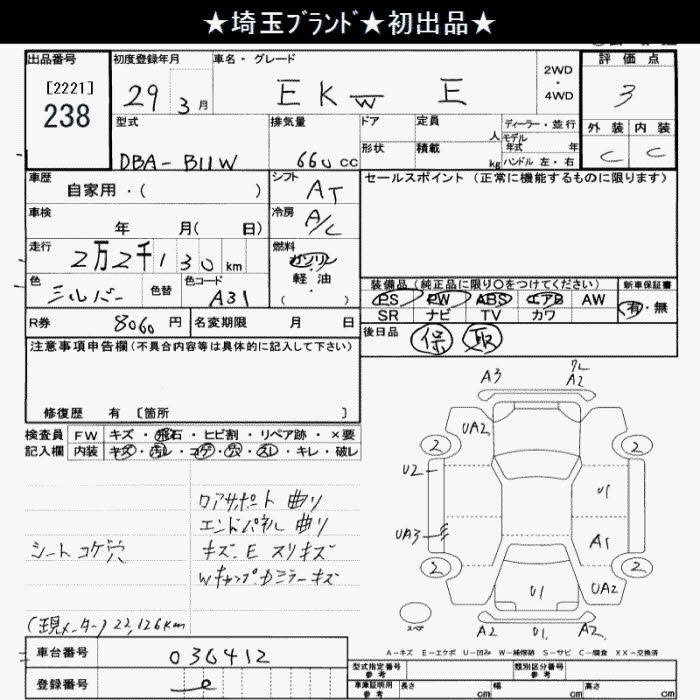 ★埼玉ﾌﾞﾗﾝﾄﾞ★初出品★
出品番号
[2221]
238
初度登録年月
29 3月
車名・グレード
EKW E
2WD
・
4WD
評価点
3
外装 内装
C C
型式
DBA-B11W
排気量
660cc
ドア
形状
定員
人
積載
kg
ディーラー・並行
モデル
年式 年
ハンドル 左・右
車歴
自家用・( )
シフト
AT
セールスポイント (正常に機能するものに限ります)
車検
年 月( 日)
冷房
A/C
走行
2万2千130km
燃料
ガソリン
軽油
( )
色
シルバー
色替
色コード
A31
装備品(純正品に限り○をつけてください)
PS PW ABS エアB AW
SR ナビ TV カワ
新車保証書
有・無
R券
8060円
名変期限 月 日
後日品
保 取
注意事項申告欄(不具合内容等は具体的に記入して下さい)
修復歴 有 [箇所 ]
検査員
記入欄
FW キズ・飛石・ヒビ割・リペア跡・×要
内装 キズ・汚レ・コゲ・穴・スレ・キレ・破レ
シート コゲ穴
ロアサポート 曲り
エンドパネル 曲り
キズ.E スリキズ
Wキャップ.Dミラーキズ
(現メーター) 22,126km
A3
A2
UA2
2
2
U2
U1
UA3
A1
2
2
U1
UA2
スペア
A2 U1. A2
A-キズ E-エクボ U-凹み W-補修跡 S-サビ C-腐食 XX-交換済
車台番号
036412
登録番号
型式指定番号
参考
類別区分番号
参考
車庫証明用
参考
長さ cm
幅 cm
高さ cm